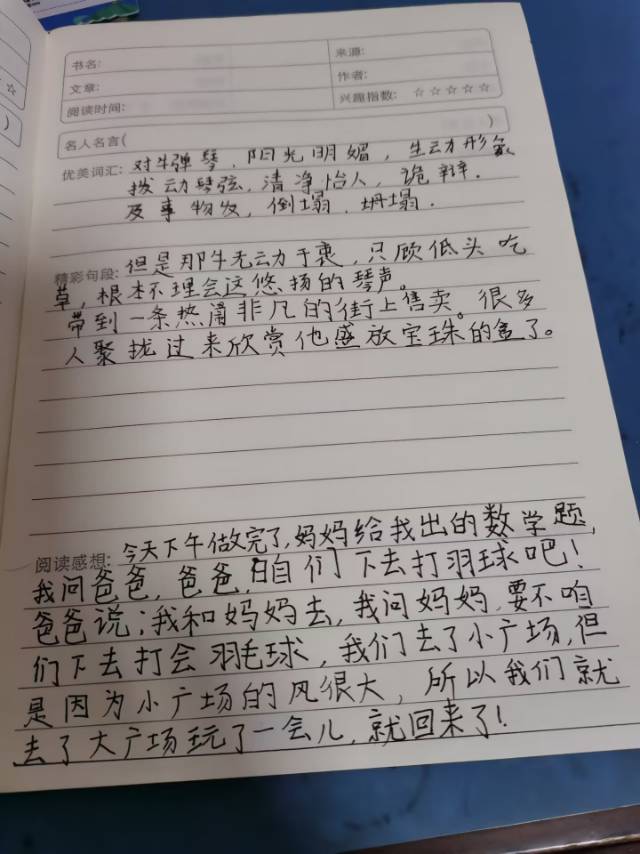 书名:
来源:
文章:
作者:
阅读时间:
兴趣指数: ☆☆☆☆☆
名人名言( )
优美词汇: 对牛弹琴，阳光明媚，生动形象
拨动琴弦，清净怡人，诡辩．
及事物发，倒塌．坍塌．
精彩句段: 但是那牛无动于衷，只顾低头吃
草，根本不理会这悠扬的琴声。
带到一条热闹非凡的街上售卖。很多
人聚拢过来欣赏他盛放宝珠的盒了。
阅读感想: 今天下午做完了,妈妈给我出的数学题,
我问爸爸，爸爸,咱们下去打羽球吧!
爸爸说:我和妈妈去，我问妈妈,要不咱
们下去打会羽毛球，我们去了小广场,但
是因为小广场的风很大，所以我们就
去了大广场玩了一会儿,就回来了!